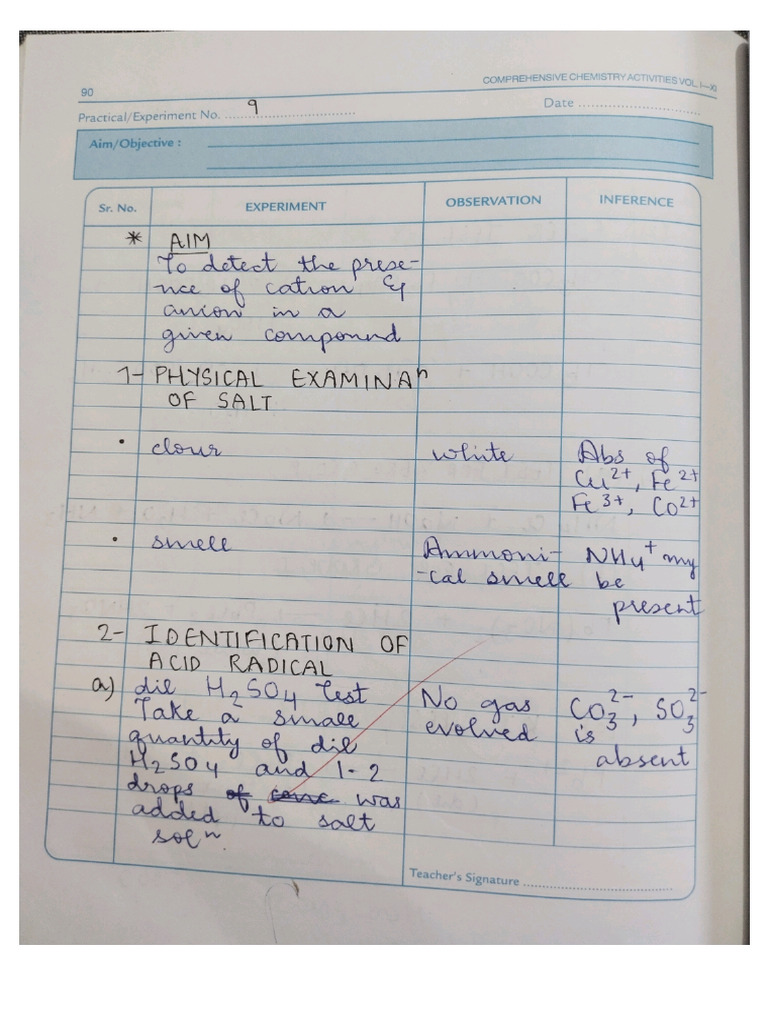 90
COMPREHENSIVE CHEMISTRY ACTIVITIES VOL. I—XI
Practical/Experiment No. 9
Date
Aim/Objective :
Sr. No. EXPERIMENT OBSERVATION INFERENCE
* AIM
To detect the prese-
nce of cation &
anion in a
given compound
1- PHYSICAL EXAMINAⁿ
OF SALT
• clour white Abs of
Cu²⁺, Fe²⁺
Fe³⁺, Co²⁺
• smell Ammoni- NH₄⁺ my
-cal smell be
present
2- IDENTIFICATION OF
ACID RADICAL
a) dil H₂SO₄ Test No gas CO₃²⁻, SO₃²⁻
Take a small evolved is
quantity of dil absent
H₂SO₄ and 1-2
drops of conc was
added to salt
solⁿ.
Teacher's Signature